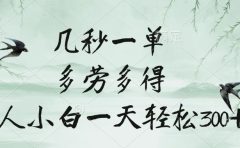 几秒一单
多劳多得
人小白一天轻松300+